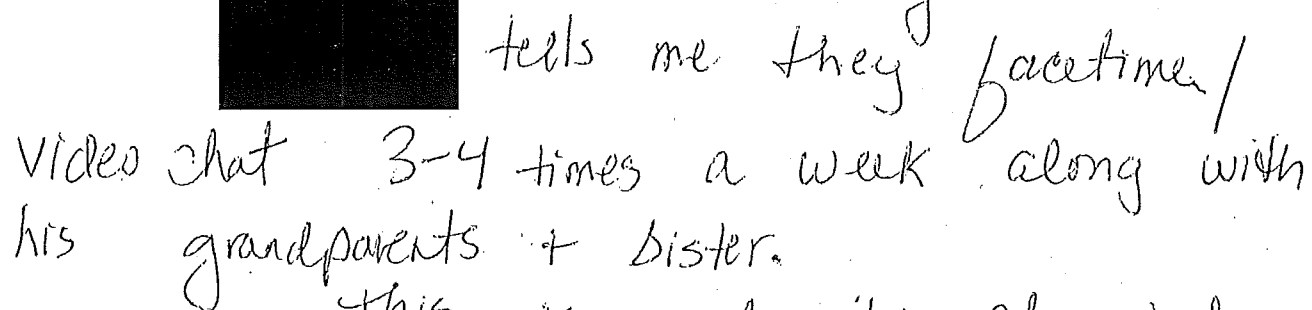 tells me they facetime/
video chat 3-4 times a week along with
his grandparents + sister.
this